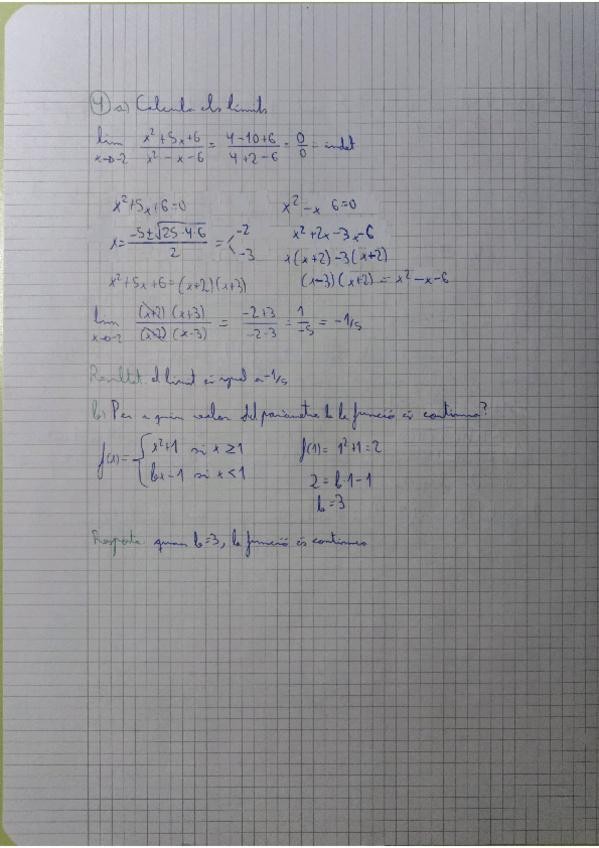 4 a) Calcula els límits
lim x→-2 (x²+5x+6)/(x²-x-6) = (4-10+6)/(4+2-6) = 0/0 = indet
x²+5x+6=0 x²-x 6=0
x = (-5±√(25-4·6))/2 = < -2 -3 x²+2x-3x-6
x(x+2)-3(x+2)
x²+5x+6=(x+2)(x+3) (x-3)(x+2) = x²-x-6
lim x→-2 ((x+2)(x+3))/((x+2)(x-3)) = (-2+3)/(-2-3) = 1/-5 = -1/5
Resultat: el límit és igual a -1/5
b) Per a quin valor del paràmetre b la funció és contínua?
f(x) = { x²+1 si x≥1 f(1) = 1²+1=2
bx-1 si x<1 2 = b·1-1
b=3
Resposta: quan b=3, la funció és contínua